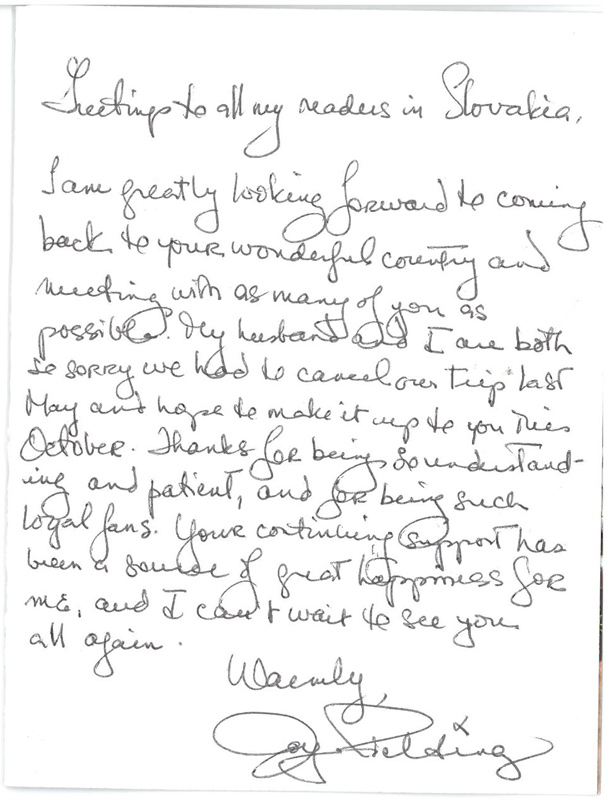 Greetings to all my readers in Slovakia,
I am greatly looking forward to coming
back to your wonderful country and
meeting with as many of you as
possible. My husband and I are both
so sorry we had to cancel our trip last
May and hope to make it up to you this
October. Thanks for being so understand-
ing and patient, and for being such
loyal fans. Your continuing support has
been a source of great happiness for
me, and I can't wait to see you
all again.
Warmly,
Joy Fielding